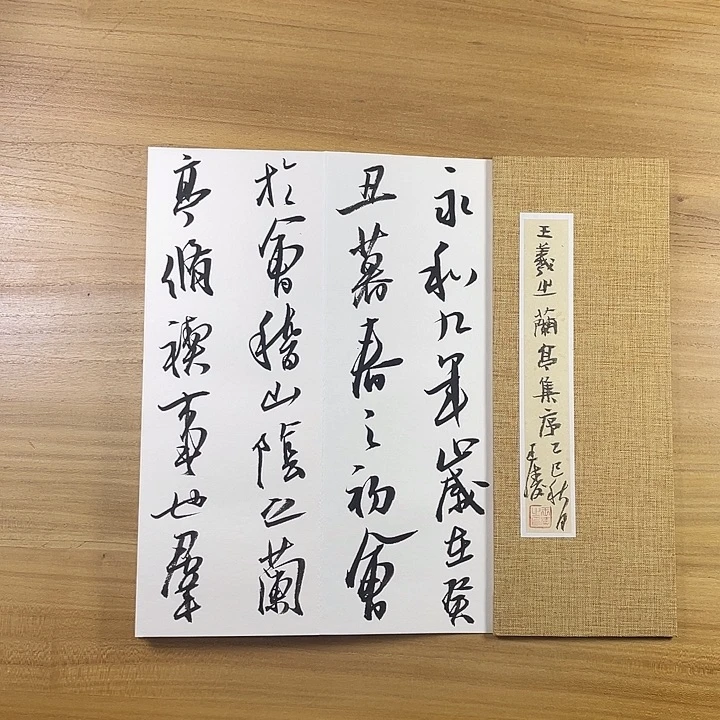 王羲之蘭亭集序
乙巳秋月
永和九年歲在癸
丑暮春之初會
於會稽山陰之蘭
亭脩禊事也羣